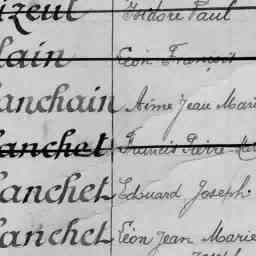 izeul Isidore Paul
lain Léon François
anchain Aimé Jean Marie
anchet Francis Pierre
anchet Edouard Joseph.
anchet Léon Jean Marie
Joseph